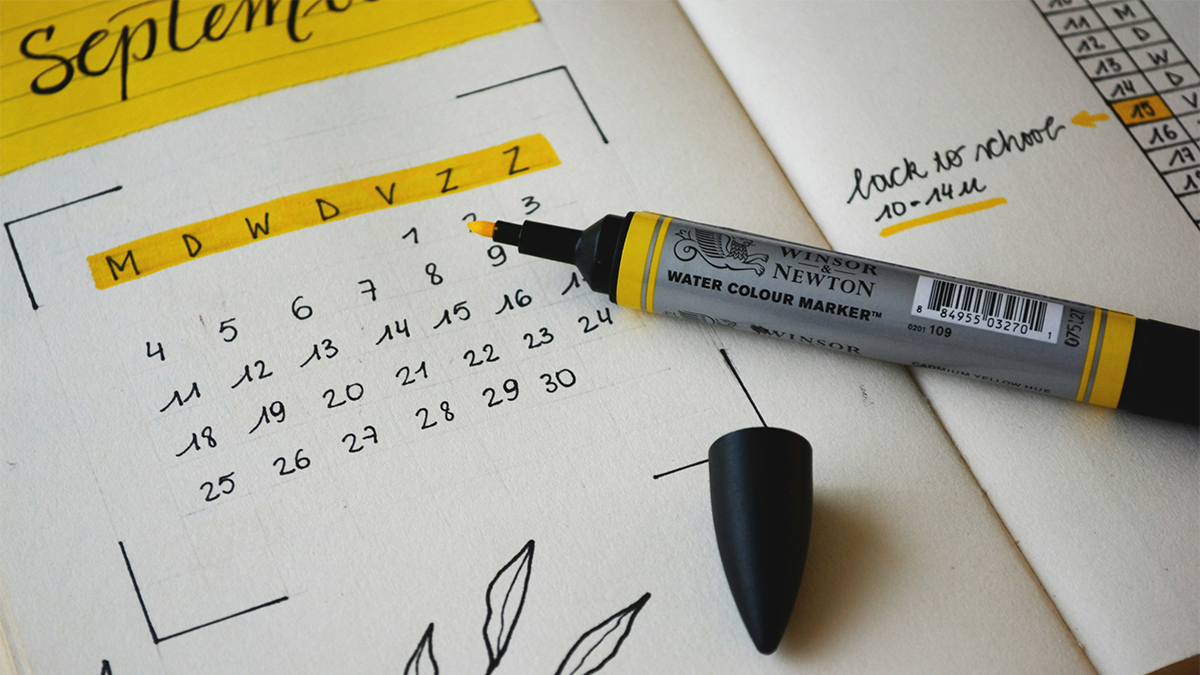 M D W D V Z Z
1 3
4 5 6 7 8 9
11 12 13 14 15 16
18 19 20 21 22 23 24
25 26 27 28 29 30
11 M
12 D
13 W
14 D
15 V
16
17
back to school
10-14u
WINSOR
&
NEWTON
WATER COLOUR MARKER™
8 84955 03270 1
0201 109
WINSOR
CADMIUM YELLOW HUE